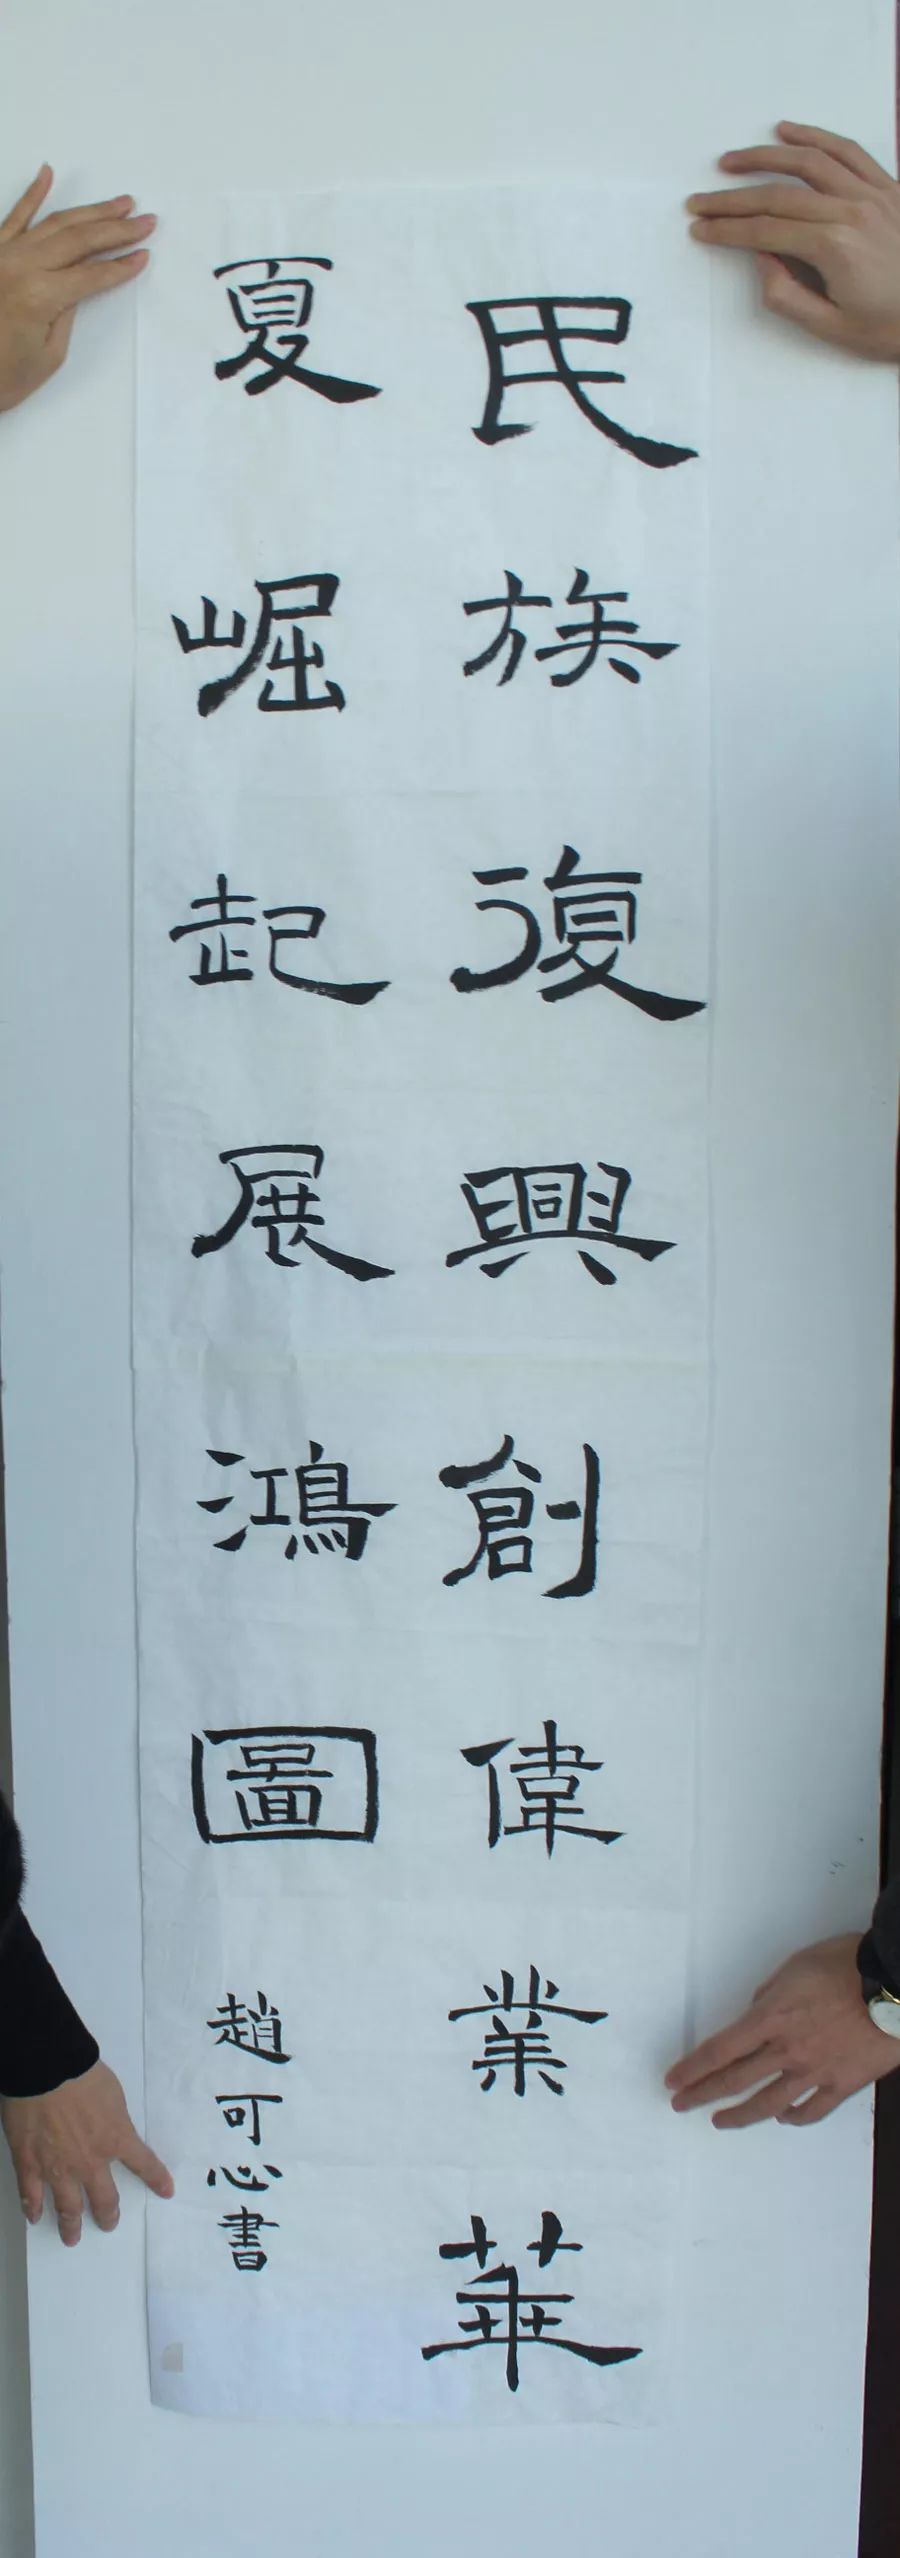 民族復興創偉業華
夏崛起展鴻圖
趙可心書